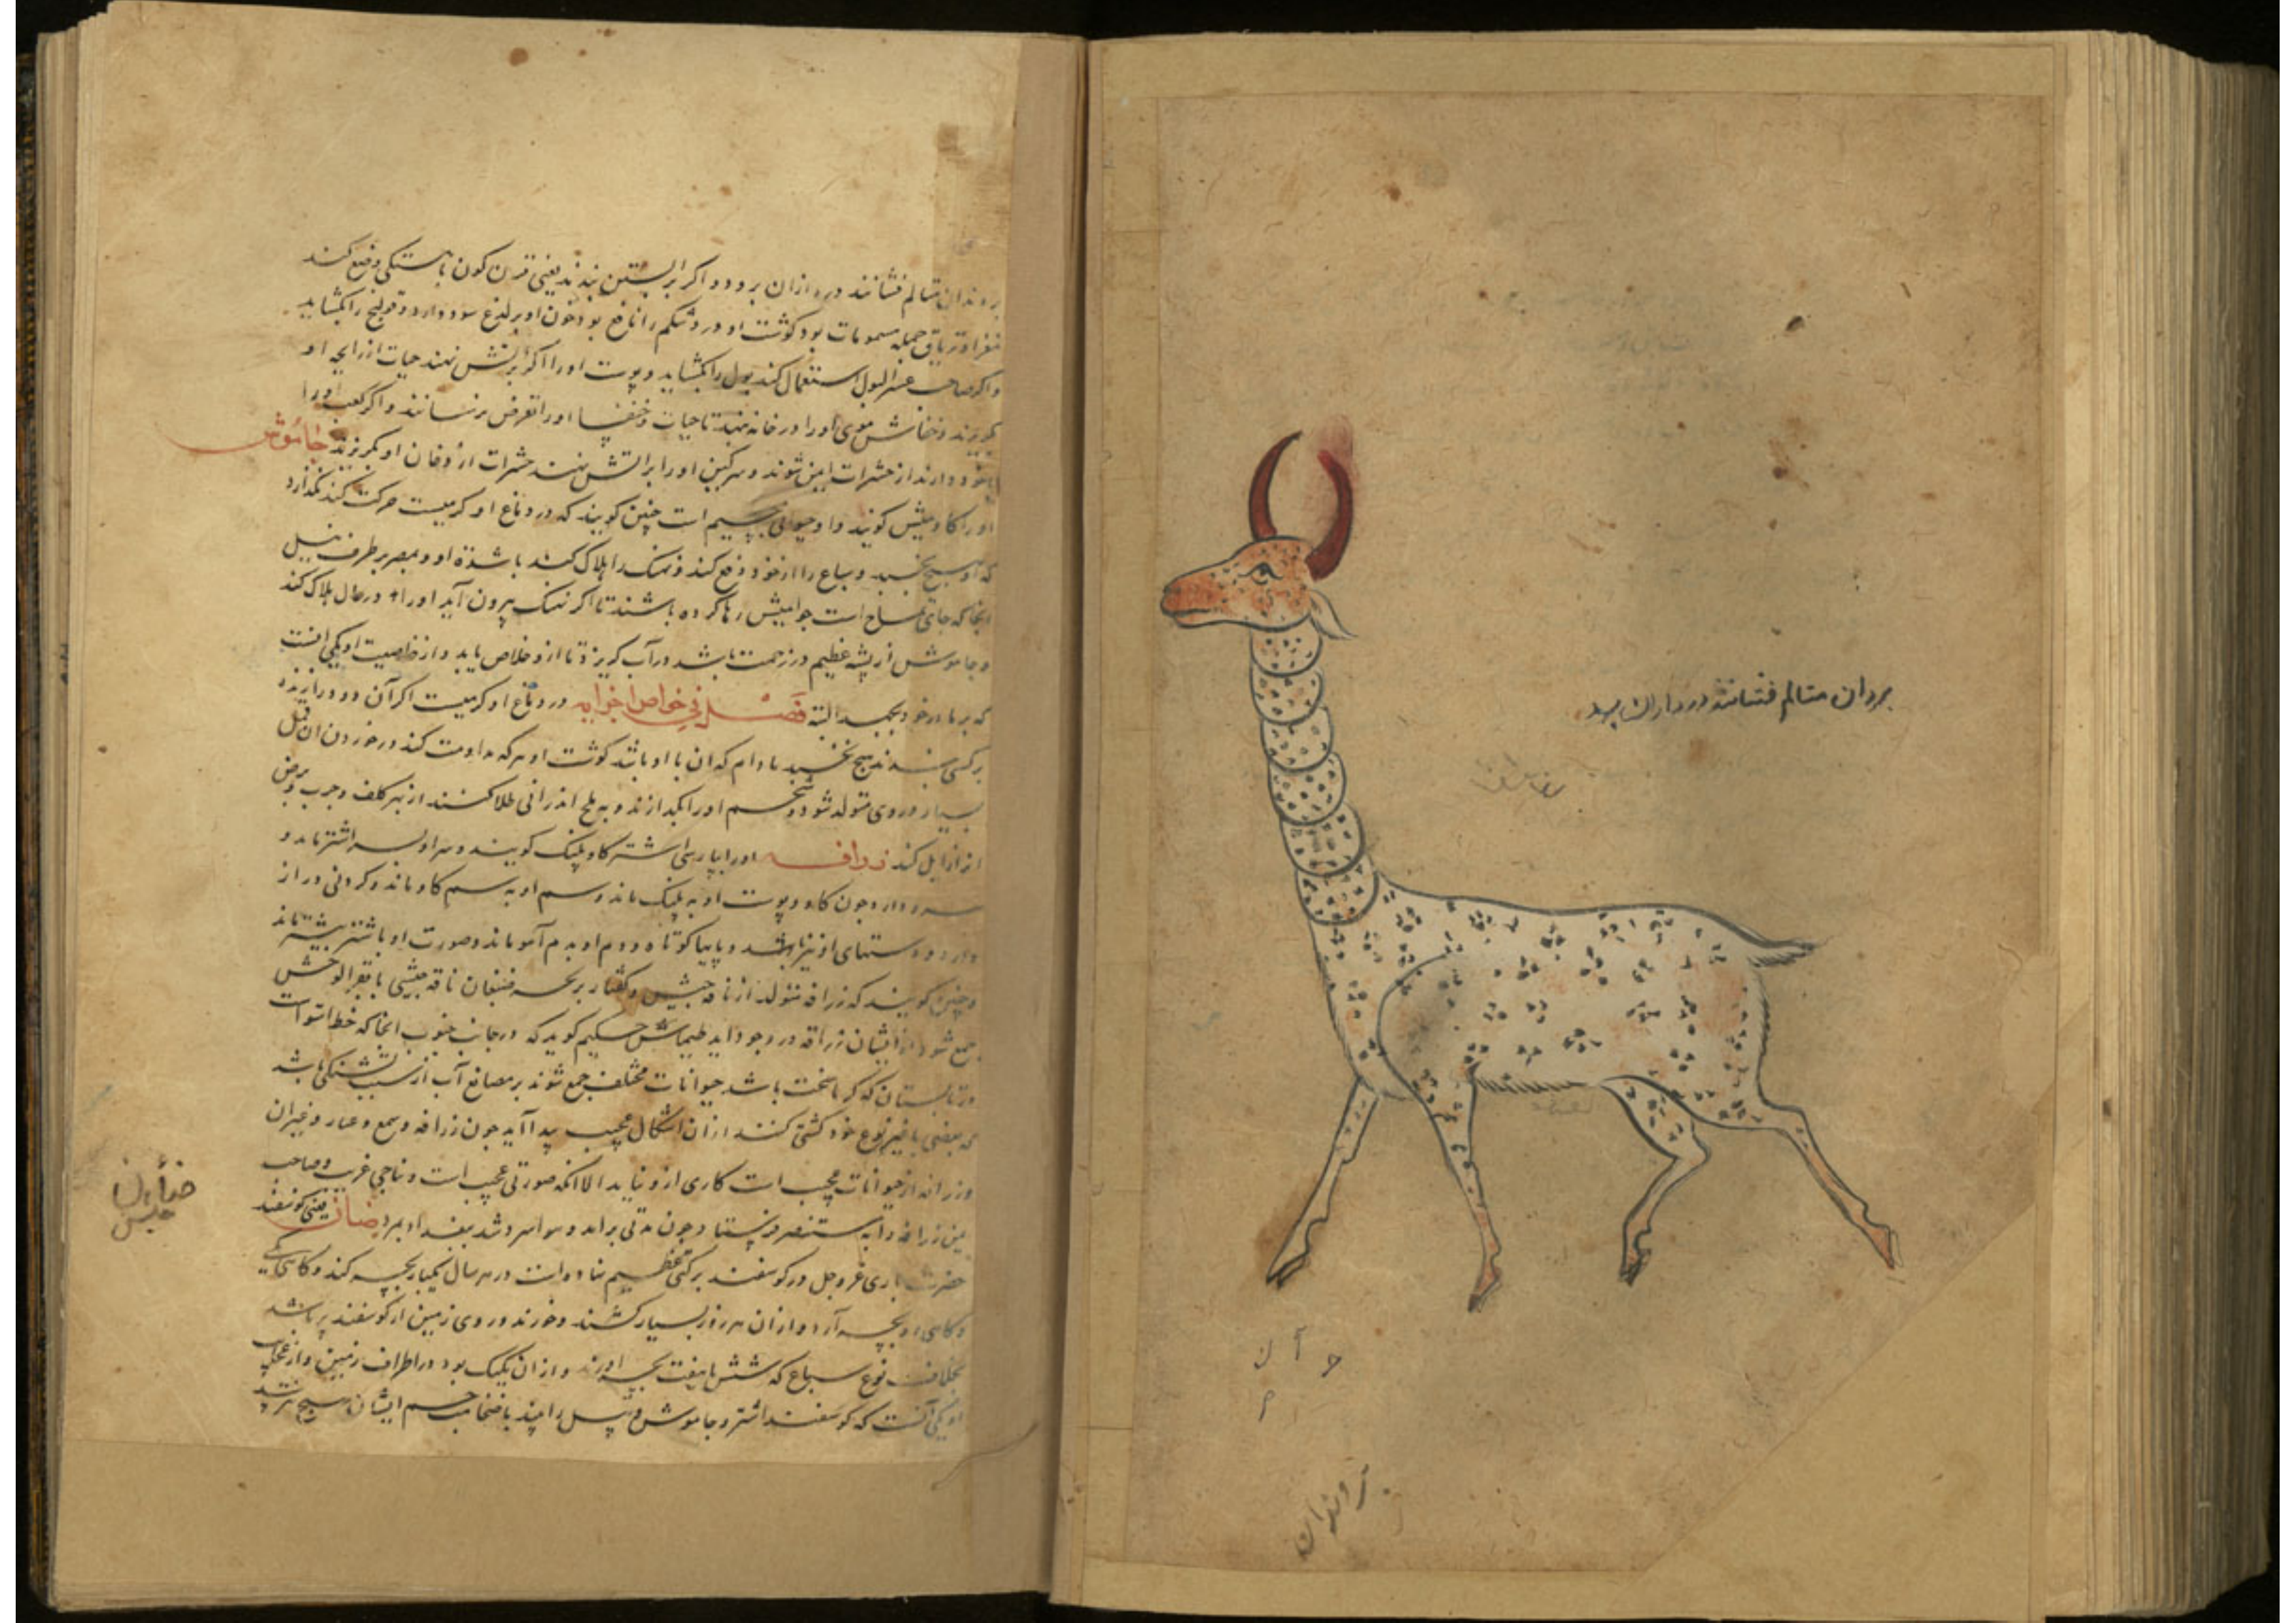 بردندان متالم فشانند درد ازان برود
بر دندان متالم فشانند درد ازان برود و اکر بر آبستن بندند یعنی قرن کون باهستکی وضع کند
و تریاق جمله مسمومات بود کوشت او درد شکم را نافع بود خون او بر لدغ سود دارد و قولنج را بکشاید
و اکر صاحب عسر البول استعمال کند بول را بکشاید و پوست او را اکر بر آتش نهند حیات از رایحه او
بکریزند و موی او را در خانه نهند تا حیات و خنفسا او را تعرض نرسانند و اکر کعب او را
با خود دارند از حشرات ایمن شوند و سرکین او را بر آتش نهند حشرات از دخان او بکریزند جاموش
او را کاومیش کویند و او حیوانی جسیم است چنین کویند که در دماغ او کرمیست حرکت کند نکذارد
که او هیچ بخسبد و سباع را از خود دفع کند و نهنک را هلاک کند با شدة او و بمصر بر طرف نیل
انجا که جای تمساح است جوامیش رها کرده باشند تا اکر نهنک بیرون آید او را در حال هلاک کند
و جاموش از پشه عظیم در زحمت باشد در آب کریزد تا از و خلاص یابد و از خاصیت او یکی انست
که بر مادر خود نجهد البته فصل فی خواص اجزایه در دماغ او کرمیست اکر آن دود را زنده
بر کسی بندند هیچ نخسبد مادام که ان با او باشد کوشت او هر که مداومت کند در خوردن ان قمل
بسیار در وی متولد شود و شحم او را بکدازند و به ملح اندرانی طلا کنند از بهر کلف و جرب و برص
انرا زایل کند زرافه او را بپارسی اشتر کاو پلنک کویند و سر او بسر اشتر ماند و
سرو دارد چون کاو و پوست او به پلنک ماند و سم او به سم کاو ماند و کردنی دراز
دارد و دستهای او نیز باشد و پایها کوتاه و دم او بدم آهو ماند و صورت او باشتر بیشتر ماند
و چنین کویند که زرافه متولد از ناقه حبش و کفتار ناقه حبشی با بقر الوحش
جمع شود از ایشان زرافه در وجود اید طیماش حکیم کوید که در جانب جنوب انجا که خط استوات
در تابستان که کرما سخت باشد حیوانات مختلف جمع شوند بر مصانع آب از سبب تشنکی باشد
که بعضی با غیر نوع خود کشتی کنند از ان اشکال عجیب پیدا آید چون زرافه و سمع و عبار و غیر ان
و زرافه از حیوانات عجیب است کاری از و نیاید الا انکه صورتی عجیب است و نتاجی غریب و صاحب
یمن زرافه را به مستنصر فرستاد چون مدتی بر امد و هوا سرد شد ببغداد بمرد ضان یعنی کوسفند
حضرت باری عز و جل در کوسفند برکتی عظیم نهاده است در هر سال یکبار بچه کند و کاهی یکی
و کاهی دو بچه آرد و از ان هر روز بسیار کشند و خورند و روی زمین از کوسفند پر باشد
بخلاف نوع سباع که شش یا هفت بچه اورند و از ان یکیک بود در اطراف زمین و از عجایب
او یکی آنست که کوسفند اشتر و جاموش و پیل را بیند با ضخامت جسم ایشان هیچ نترسد